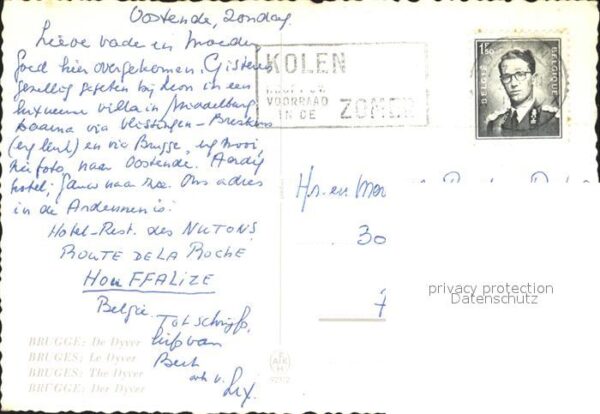 Oostende, Zondag.
Lieve vader en Moeder
Goed hier overgekomen. Gisteren
gezellig gegeten bij Leon in een
luxueuse villa in Middelburg
Daarna via Vlissingen - Breskens
(erg leuk) en via Brugge, erg mooi,
zie foto, naar Oostende. Aardig
hotel; gauw naar zee. Ons adres
in de Ardennen is:
Hotel-Rest. des NUTONS
ROUTE DE LA ROCHE
HOUFFALIZE
België.
Tot schrijfs,
liefs van
Bert
ook v.
BRUGGE: De Dyver
BRUGES: Le Dyver
BRUGES: The Dyver
BRÜGGE: Der Dyver
KOLEN
VOORRAAD
IN DE ZOMER
1F50
BELGIE BELGIQUE
Hr. en
30
7
privacy protection
Datenschutz